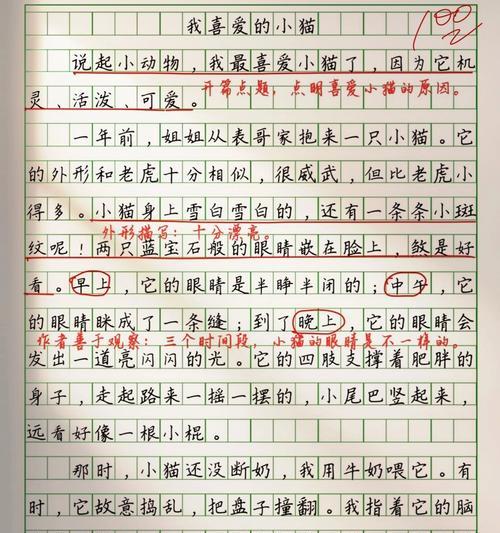 我喜爱的小猫
100
说起小动物，我最喜爱小猫了，因为它机
灵、活泼、可爱。
开篇点题，点明喜爱小猫的原因。
一年前，姐姐从表哥家抱来一只小猫。它
的外形和老虎十分相似，很威武，但比老虎小
得多。小猫身上雪白雪白的，还有一条条小斑
外形描写：十分漂亮。
纹呢！两只蓝宝石般的眼睛嵌在脸上，煞是好
看。早上，它的眼睛是半睁半闭的；中午，它
的眼睛眯成了一条缝；到了晚上，它的眼睛会
作者善于观察：三个时间段，小猫的眼睛是不一样的。
发出一道亮闪闪的光。它的四肢支撑着肥胖的
身子，走起路来一摇一摆的，小尾巴竖起来，
远看好像一根小棍。
那时，小猫还没断奶，我用牛奶喂它。有
时，它故意捣乱，把盘子撞翻。我指着它的脑